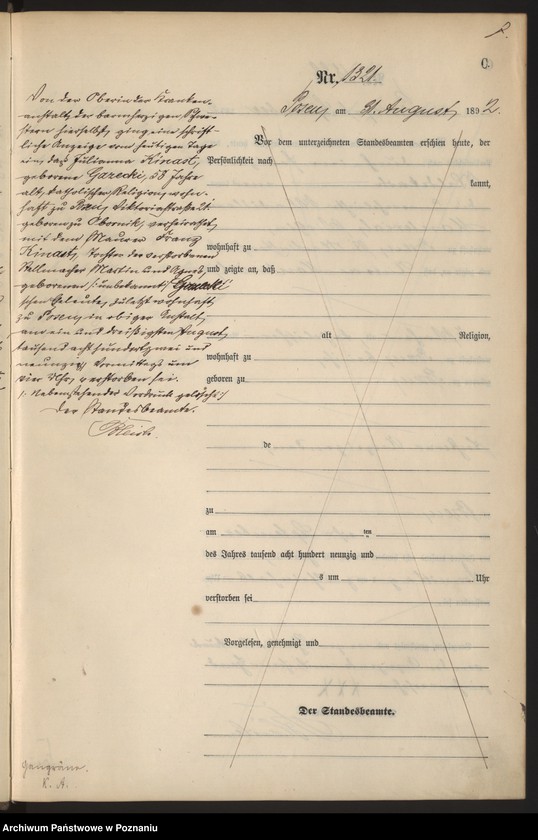 C.
Nr. 1321.
Posen, am 31. August 1892.
Von der Oberin der Kranken-
anstalt der barmherzigen Schwe-
stern hierselbst, ging eine schrift-
liche Anzeige vom heutigen Tage
ein, daß Julianna Kinast,
geborene Garecki, 58 Jahre
alt, katholischer Religion, wohn-
haft zu Viktoriastraße
geboren zu Obornik, verheirathet
mit dem Maurer Franz
Kinast, Tochter der verstorbenen
Stellmacher Martin und Agnes,
geborenen /:unbekannt:/ Garecki
schen Eheleute, zuletzt wohnhaft
zu Posen, in obiger Anstalt,
am ein und dreißigsten August
tausend acht hundert zwei und
neunzig Vormittags um
vier Uhr, verstorben sei.
/: Nebenstehender Vordruck gelöscht :/
Der Standesbeamte.
Vor dem unterzeichneten Standesbeamten erschien heute, der
Persönlichkeit nach
kannt,
wohnhaft zu
und zeigte an, daß
alt Religion,
wohnhaft zu
geboren zu
de
zu
am ten
des Jahres tausend acht hundert neunzig und
s um Uhr
verstorben sei
Vorgelesen, genehmigt und
Der Standesbeamte.
Gangräne.
K. A.
Archiwum Państwowe w Poznaniu